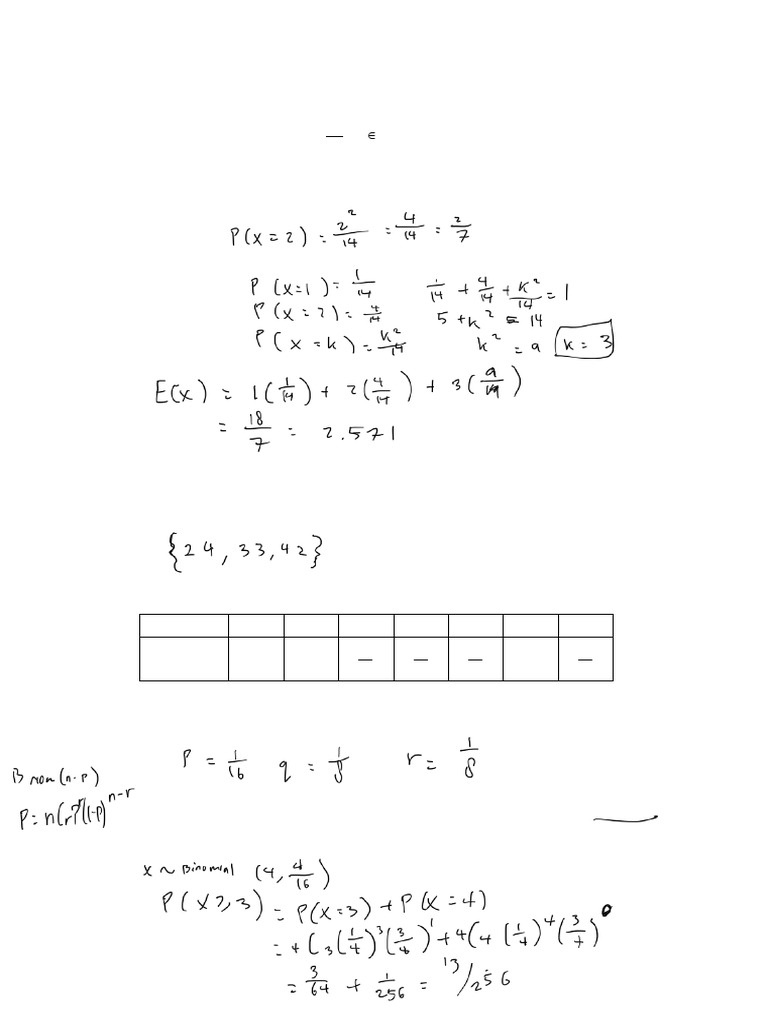 — ∈
P(x=2) = 2²/14 = 4/14 = 2/7
P(x=1) = 1/14    1/14 + 4/14 + k²/14 = 1
P(x=2) = 4/14    5 + k² = 14
P(x=k) = k²/14    k² = 9    k = 3
E(x) = 1(1/14) + 2(4/14) + 3(9/14)
= 18/7 = 2.571
{24, 33, 42}
— — — —
P = 1/16    q = 1/8    r = 1/8
n-r
x ~ Binomial (4, 4/16)
P(x≥3) = P(x=3) + P(x=4)
= 4C3(1/4)³(3/4)¹ + 4C4(1/4)⁴(3/4)⁰
= 3/64 + 1/256 = 13/256